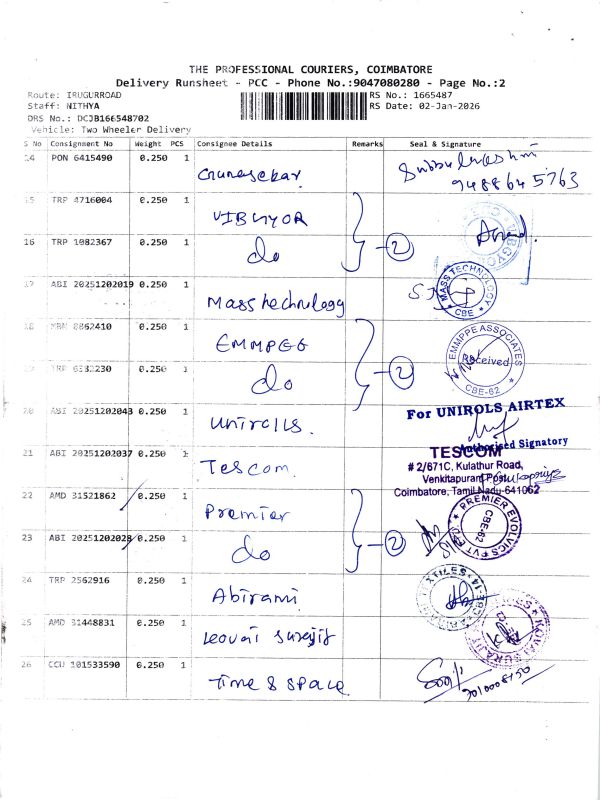 THE PROFESSIONAL COURIERS, COIMBATORE
Delivery Runsheet - PCC - Phone No.:9047080280 - Page No.:2
Route: IRUGURROAD
Staff: NITHYA
DRS No.: DCJB166548702
Vehicle: Two Wheeler Delivery
RS No.: 1665487
RS Date: 02-Jan-2026
S No Consignment No Weight PCS Consignee Details Remarks Seal & Signature
14 PON 6415490 0.250 1 Gunasekar Subbulakshmi
9488645763
15 TRP 4716004 0.250 1 VIBGYOR
16 TRP 1082367 0.250 1 do 2 Anand.
17 ABI 20251202019 0.250 1 Mass technology MASS TECHNOLOGY CBE
18 8862410 0.250 1 EMMPEE EMMPPE ASSOCIATES Received CBE-62
19 TRP 0.250 1 do 2
20 ABI 20251202043 0.250 1 Unirolls. For UNIROLS AIRTEX
Authorised Signatory
21 ABI 20251202037 0.250 1 Tescom. TESCOM
# 2/671C, Kulathur Road,
Venkitapuram Post
Coimbatore, Tamil Nadu-641062
22 AMD 31521862 0.250 1 Premier PREMIER EVOLVICS PVT CBE-62
23 ABI 20251202028 0.250 1 do 2
24 TRP 2562916 0.250 1 Abirami
25 AMD 31448831 0.250 1 Kovai Surajit KOVAI
26 CCU 101533590 0.250 1 Time & space